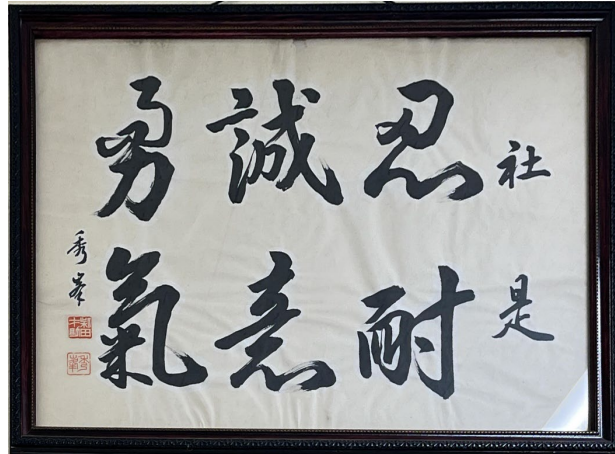 社是
忍耐
誠意
勇氣
秀峯